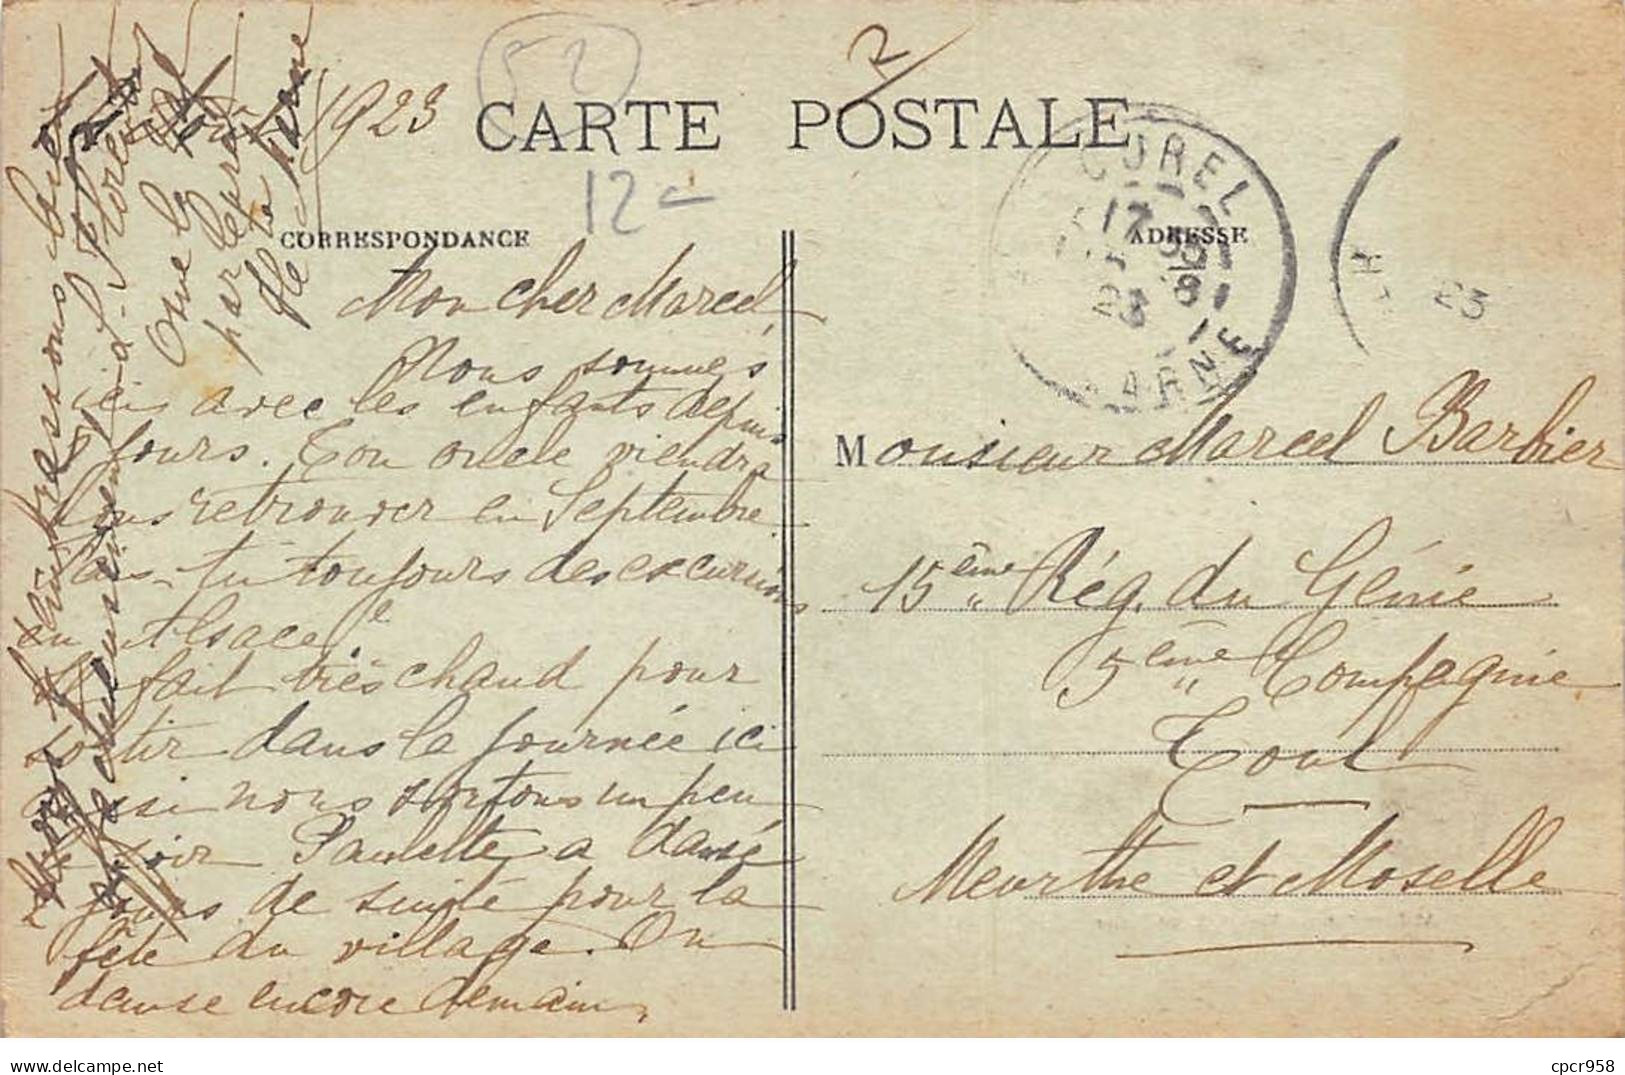 52
R
1923
CARTE POSTALE
12
CUREL
17 35
8
23
MARNE
23
CORRESPONDANCE
ADRESSE
Osne le
par Curel
Hte Marne
Mon cher Marcel,
Nous sommes
ici avec les enfants depuis
8 jours. Ton oncle viendra
nous retrouver en Septembre
Fais-tu toujours des excursions
en Alsace ?
Il fait très chaud pour
sortir dans la journée ici
aussi nous sortons un peu
le soir Paulette a dansé
2 jours de suite pour la
fête du village. On
danse encore demain.
Monsieur Marcel Barbier
15ème Rég. du Génie
5ème Compagnie
Toul
Meurthe et Moselle
cpcr958